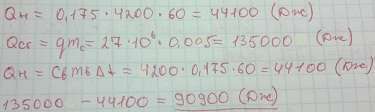 Qн = 0,175 · 4200 · 60 = 44100 (Дж)
Qсг = qmс = 27·10⁶ · 0,005 = 135000 (Дж)
Qн = Cвmв Δt = 4200 · 0,175 · 60 = 44100 (Дж)
135000 - 44100 = 90900 (Дж)